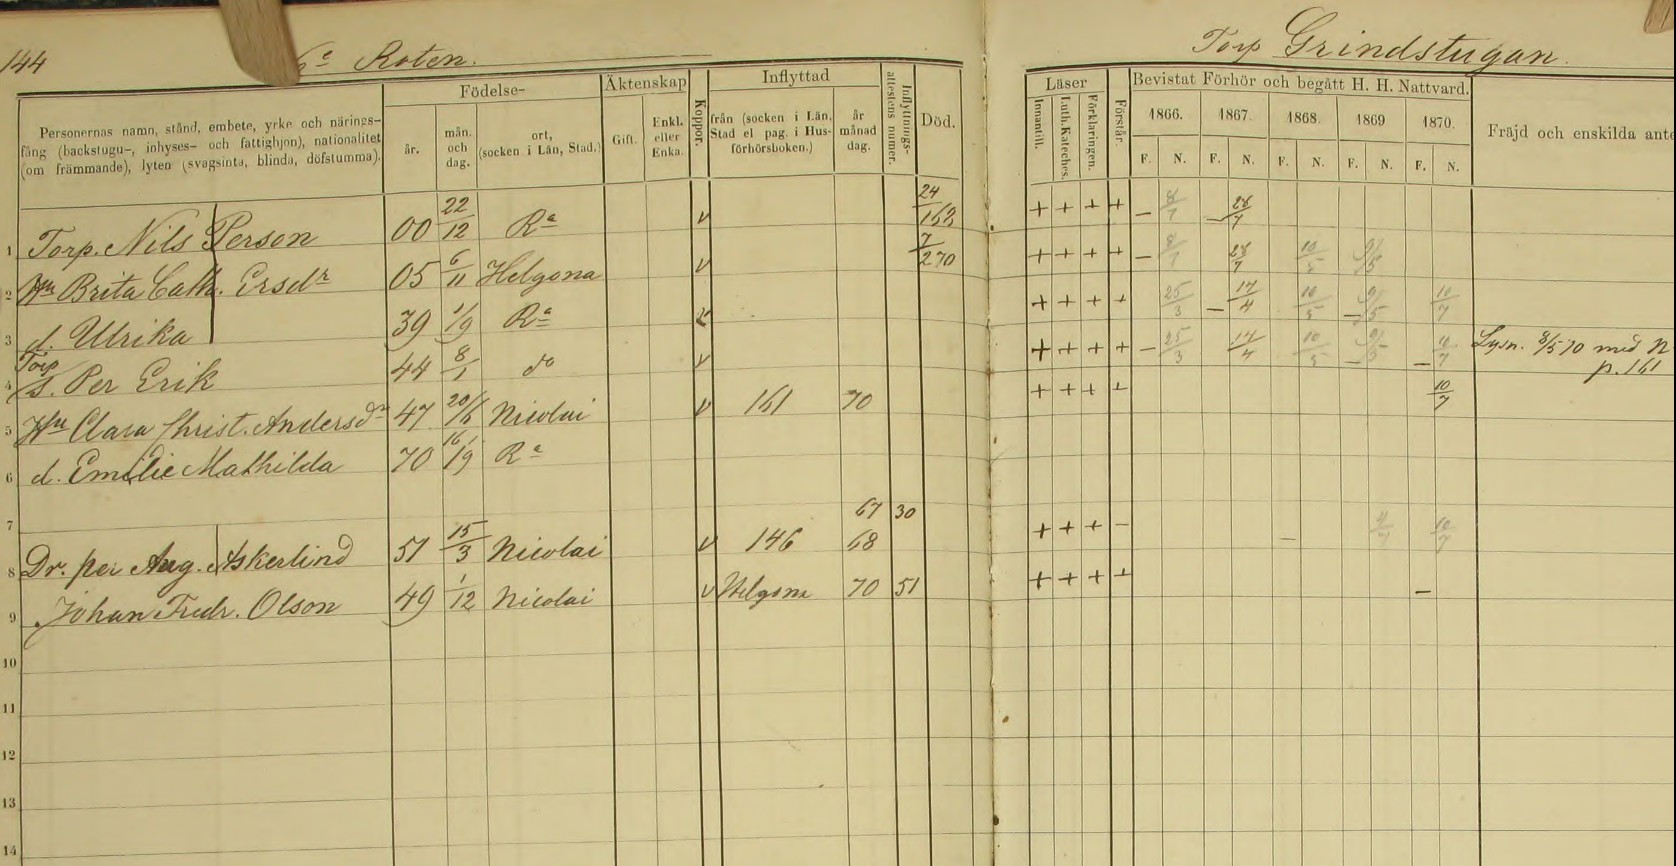 144
6e Roten.
Torp Grindstugan.
Personernas namn, stånd, embete, yrke och närings-
fång (backstugu-, inhyses- och fattighjon), nationalitet
(om främmande), lyten (svagsinta, blinda, döfstumma).
Födelse-
år.
mån.
och
dag.
ort,
(socken i Län, Stad.)
Äktenskap
Gift.
Enkl.
eller
Enka.
Koppor.
Inflyttad
från (socken i Län,
Stad el pag. i Hus-
förhörsboken.)
år
månad
dag.
Inflyttnings-
attestens numer.
Död.
Läser
Innantill.
Luth. Kateches.
Förklaringen.
Förstår.
Bevistat Förhör och begått H. H. Nattvard.
1866. 1867. 1868. 1869 1870.
F. N. F. N. F. N. F. N. F. N.
Fräjd och enskilda ante
1 Torp. Nils Person 00 22/12 Ra v 24/162 + + + + – 8/7 – 28/7
2 Hu Brita Cath. Ersdr 05 6/11 Helgona v 7/270 + + + + – 8/7 28/7 10/5 9/5
3 d. Ulrika 39 1/9 Ra v + + + + 25/3 – 14/4 10/5 – 9/5 10/7
4 Torp s. Per Erik 44 8/1 do v + + + + – 25/3 14/4 10/5 – 9/5 – 10/7 Lysn. 8/5 70 med N
p. 161
5 Hu Clara Christ. Andersdr 47 20/6 Nicolai v 161 70 + + + + 10/7
6 d. Emilie Mathilda 70 16/9 Ra
7 67 30
8 Dr. per Aug. Askerlind 51 15/3 Nicolai v 146 68 + + + – – 4/7 10/7
9 Johan Fredr. Olson 49 1/12 Nicolai v Helgona 70 51 + + + + –
10
11
12
13
14